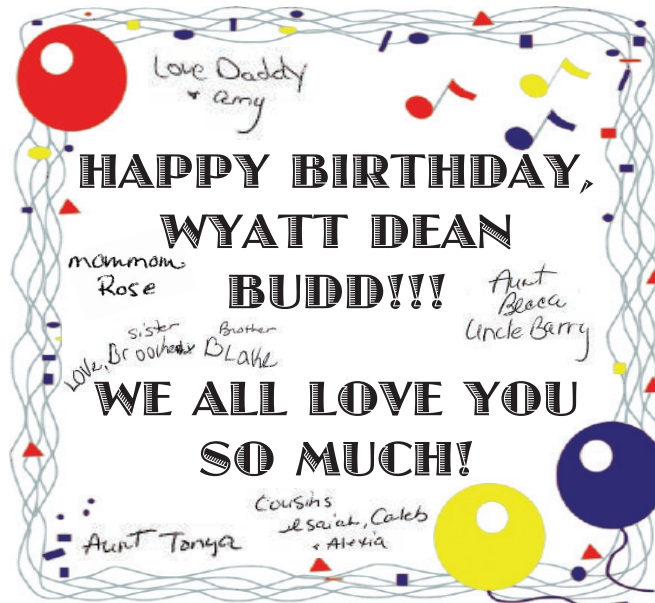 Love Daddy
+ amy
HAPPY BIRTHDAY,
WYATT DEAN
BUDD!!!
mommom
Rose
Aunt
Becca
Uncle Barry
sister
Brother
Love, Brooke
BLake
WE ALL LOVE YOU
SO MUCH!
Cousins
Isaiah, Caleb
+ Alexia
Aunt Tonya